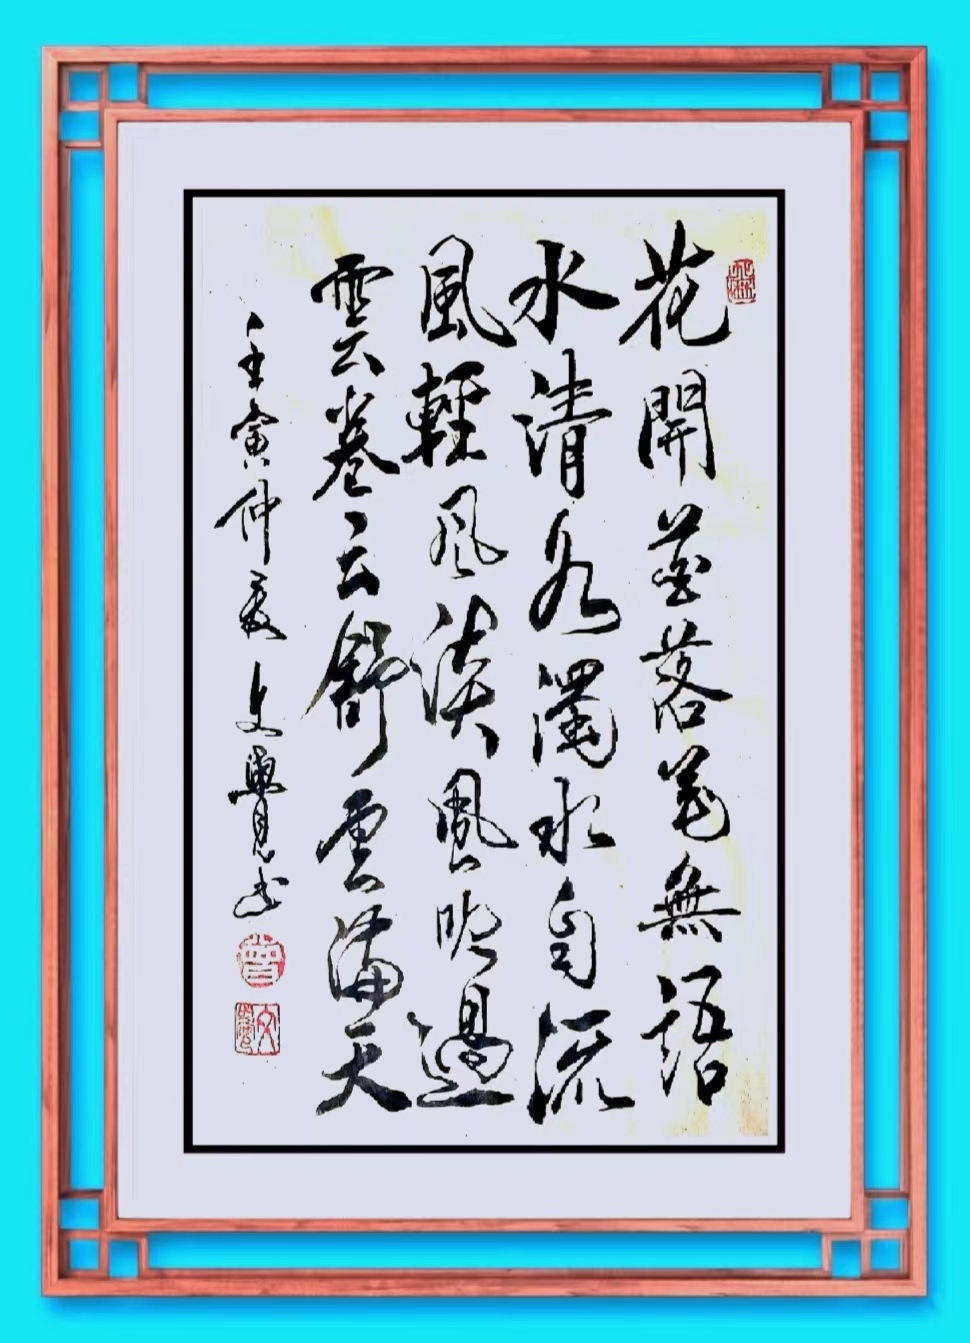 花開花落花無語
水清水濁水自流
風輕風淡風吹過
雲卷云舒雲滿天
壬寅仲夏文覺书
曾
文覺